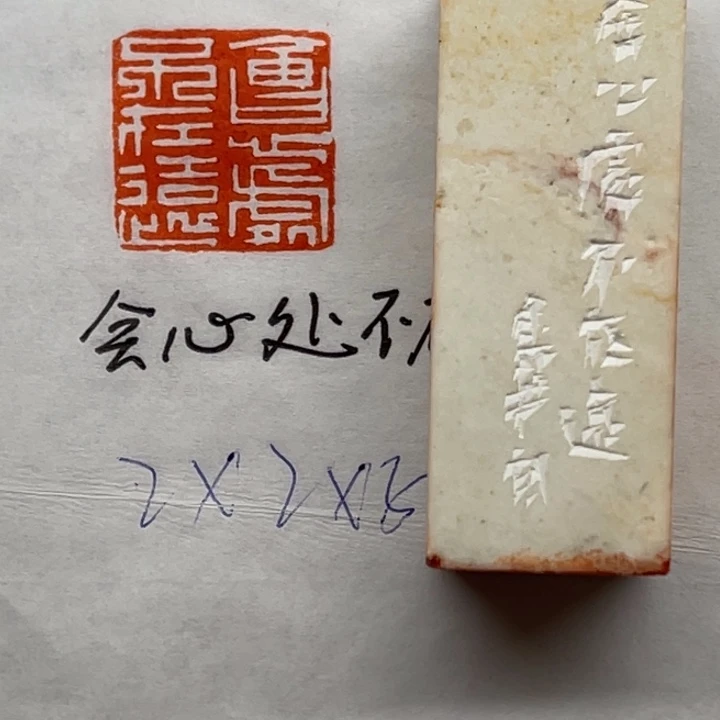 會心處不在遠
会心处不
2X2X5
會心處不在遠